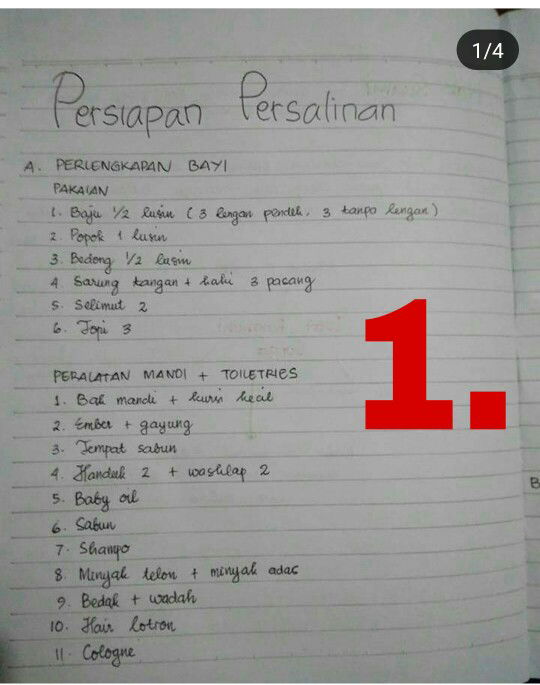 1/4
Persiapan Persalinan
A. PERLENGKAPAN BAYI
PAKAIAN
1. Baju 1/2 lusin (3 lengan pendek, 3 tanpa lengan)
2. Popok 1 lusin
3. Bedong 1/2 lusin
4 Sarung tangan + kaki 3 pasang
5. Selimut 2
6. Topi 3
1.
PERALATAN MANDI + TOILETRIES
1. Bak mandi + kursi kecil
2. Ember + gayung
3. Tempat sabun
4. Handuk 2 + washlap 2
5. Baby oil
6. Sabun
7. Shampo
8. Minyak telon + minyak adas
9. Bedak + wadah
10. Hair lotion
11. Cologne
B